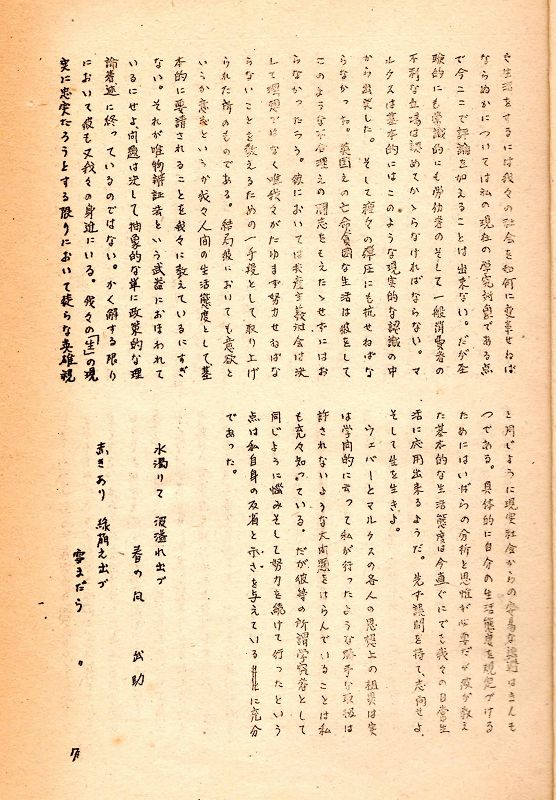 き生活をするには我々の社会を如何に変革せねば
ならぬかについては私の現在の学究対象である点
で今ここで評論を加えることは出来ない。だが経
験的にも常識的にも労仂者のそして一般消費者の
不利な立場は認めてかゝらなければならない。マ
ルクスは基本的にはこのような現実的な認識の中
から出発した。そして種々の弾圧にも抗せねばな
らなかった。英国えの亡命貧困な生活は彼をして
このような不合理えの闘志をもえたゝせずにはお
らなかったろう。彼においては共産主義社会は決
して理想ではなく唯我々がたゆまず努力せねばな
らないことを教えるための一手段として取り上げ
られた所のものである。結局彼においても意欲と
いうか意志というか我々人間の生活態度として基
本的に要請されることを我々に教えているにすぎ
ない。それが唯物辨証法という武器におほわれて
いるにせよ問題は決して抽象的な単に政策的な理
論者流に終っているのではない。かく解する限り
において彼も又我々の身近にいる。我々の「生」の現
実に忠実たろうとする限りにおいて徒らな英雄視
と同じように現実社会からの安易な逃避はきんも
つである。具体的に自分の生活態度を規定づける
ためにはいばらの分析と思惟が必要だが彼が教え
た基本的な生活態度は今直ぐにでも我々の日常生
活に応用出来るようだ。先ず疑問を持て、志向せよ、
そして生を生きよ。
ウェバーとマルクスの各人の思想上の相異は実
は学問的に云って私が行ったような勝手な取扱は
許されないような大問題をはらんでいることは私
も充々知っている。だが彼等の所謂学究者として
同じように悩みそして努力を続けて行ったという
点は私自身の反省と示さを与えている に充分
であった。
水濁りて 汲溢れ出づ
春の風 武助
赤きあり 緑萠え出づ
雪まだら
7